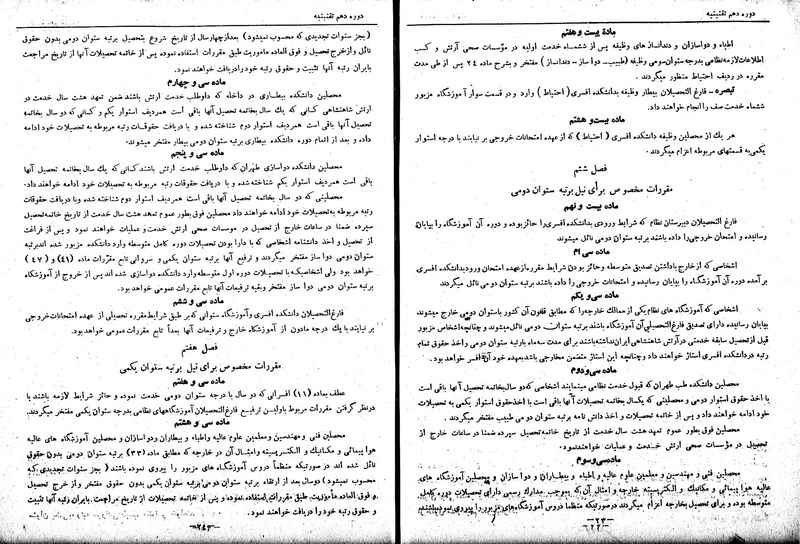 دوره دهم تقنینیه
ماده بیست و هفتم
اطباء و دواسازان و دندانسازهای وظیفه پس از ششماه خدمت اولیه در مؤسسات صحی آرتش و کسب
اطلاعات لازمه نظامی بدرجه ستوان سومی وظیفه (طبیب - دواساز - دندانساز) مفتخر و بشرح ماده ۲۴ پس از طی مدت
مقرره در ردیف احتیاط منظور میگردند.
تبصره - فارغ‌التحصیلان بیطار وظیفه بدانشکده افسری (احتیاط) وارد و در قسمت سوار آموزشگاه مزبور
ششماه خدمت صف را انجام خواهند داد.
ماده بیست و هشتم
هر یک از محصلین وظیفه دانشکده افسری (احتیاط) که از عهده امتحانات خروجی بر نیایند با درجه استوار
یکمی به قسمتهای مربوطه اعزام میگردند.
فصل ششم
مقررات مخصوص برای نیل برتبه ستوان دومی
ماده بیست و نهم
فارغ التحصیلان دبیرستان نظام که شرایط ورودی بدانشکده افسری را حائز بوده و دوره آن آموزشگاه را بپایان
رسانیده و امتحان خروجی را داده باشند برتبه ستوان دومی نائل میشوند
ماده سی ام
اشخاصی که از خارج باداشتن تصدیق متوسطه و حائز بودن شرایط مقرره از عهده امتحان ورود بدانشکده افسری
بر آمده دوره آن آموزشگاه را بپایان رسانیده و امتحانات خروجی را داده باشند برتبه ستوان دومی نائل میگردند
ماده سی و یکم
اشخاصی که آموزشگاه های نظام یکی از ممالک خارجه را که مطابق قانون آن کشور باستوان دومی خارج میشوند
بپایان رسانیده دارای تصدیق فارغ‌التحصیلی آن آموزشگاه باشند برتبه ستوان دومی نائل میشوند و چنانچه اشخاص مزبور
قبل از تحصیل سابقه خدمتی در آرتش شاهنشاهی ایران نداشته باشند برای مدت سه ماه با رتبه ستوان دومی و اخذ حقوق تمام
رتبه در دانشکده افسری استاژ خواهند داد و چنانچه این استاژ متضمن مخارجی باشد بعهده خود آن افسر خواهد بود.
ماده سی و دوم
محصلین دانشکده طب طهران که قبول خدمت نظامی مینمایند اشخاصی که دو سال بخاتمه تحصیل آنها باقی است
با اخذ حقوق استوار دومی و محصلینی که یکسال بخاتمه تحصیلات آنها باقی است با اخذ حقوق استوار یکمی به تحصیلات
خود ادامه خواهند داد و پس از خاتمه تحصیلات و اخذ دانش نامه برتبه ستوان دومی طبیب مفتخر میگردند.
محصلین فوق بطور عموم تعهد هشت سال خدمت از تاریخ خاتمه تحصیل سپرده ضمنا در ساعات خارج از
تحصیل در مؤسسات صحی آرتش خدمت و عملیات خواهند نمود.
ماده سی و سوم
محصلین فنی و مهندسین و معلمین علوم عالیه و اطباء و بیطاران و دواسازان و محصلین آموزشگاه های
عالیه هوا پیمائی و مکانیک و الکتریسیته خارجه و امثال آن که بموجب مدارک رسمی دارای تحصیلات دوره کامل
متوسطه بوده و برای تحصیل بخارجه اعزام میگردند در صورتیکه منظما دروس آموزشگاه های مزبور را پیروی نموده باشند
-۲۳-
دوره دهم تقنینیه
(بجز سنوات تجدیدی که محسوب نمیشود) بعد از چهار سال از تاریخ شروع بتحصیل برتبه ستوان دومی بدون حقوق
نائل و از خرج تحصیل و فوق العاده ماموریت طبق مقررات استفاده نموده پس از خاتمه تحصیلات آنها از تاریخ مراجعت
بایران رتبه آنها تثبیت و حقوق رتبه خود را دریافت خواهند نمود.
ماده سی و چهارم
محصلین دانشکده بیطاری در داخله که داوطلب خدمت آرتش باشند ضمن تعهد هشت سال خدمت در
آرتش شاهنشاهی کسانی که یك سال بخاتمه تحصیل آنها باقی است همردیف استوار یکم و کسانی که دو سال بخاتمه
تحصیل آنها باقی است همردیف استوار دوم شناخته شده و با دریافت حقوقات رتبه مربوطه به تحصیلات خود ادامه
داده و بعد از اتمام دوره دانشکده بیطاری برتبه ستوان دومی بیطار مفتخر میشوند.
ماده سی و پنجم
محصلین دانشکده دواسازی طهران که داوطلب خدمت آرتش باشند کسانی که یك سال بخاتمه تحصیل آنها
باقی است همردیف استوار یکم شناخته شده و با دریافت حقوقات رتبه مربوطه به تحصیلات خود ادامه خواهند داد.
محصلینی که دو سال بخاتمه تحصیل آنها باقی است همردیف استوار دوم شناخته شده و با دریافت حقوقات
رتبه مربوطه به تحصیلات خود ادامه خواهند داد محصلین فوق بطور عموم تعهد هشت سال خدمت از تاریخ خاتمه تحصیل
سپرده ضمنا در ساعات خارج از تحصیل در موسسات صحی آرتش خدمت و عملیات خواهند نمود و پس از فراغت
از تحصیل و اخذ دانشنامه اشخاصی که با دارا بودن تحصیلات دوره کامل متوسطه وارد دانشکده مزبور شده اند برتبه
ستوان دومی دوا ساز مفتخر میگردند و ترفیع آنها برتبه ستوان یکمی و سروانی تابع مقررات ماده (٤٤) و (٤٧)
خواهد بود ولی اشخاصیکه با تحصیلات دوره اول متوسطه وارد دانشکده دواسازی شده اند پس از خروج از آموزشگاه
برتبه ستوان دومی دوا ساز مفتخر و بقیه ترفیعات آنها تابع مقررات عمومی خواهد بود.
ماده سی و ششم
فارغ‌التحصیلان دانشکده افسری و آموزشگاه ستوانی که بر طبق شرایط مقرره تحصیلی از عهده امتحانات خروجی
بر نیایند با یك درجه مادون از آموزشگاه خارج و ترفیعات آنها بعداً تابع مقررات عمومی خواهد بود.
فصل هفتم
مقررات مخصوص برای نیل برتبه ستوان یکمی
ماده سی و هفتم
عطف بماده (۱۱) افسرانی که دو سال با درجه ستوان دومی خدمت نموده و حائز شرایط لازمه باشند با
در نظر گرفتن مقررات مربوط باولین ترفیع فارغ التحصیلان آموزشگاههای نظامی بدرجه ستوان یکمی مفتخر میگردند.
ماده سی و هشتم
محصلین فنی و مهندسین و معلمین علوم عالیه و اطباء و بیطاران و دواسازان و محصلین آموزشگاه های عالیه
هوا پیمائی و مکانیك و الکتریسیته و امثال آن در خارجه که مطابق ماده (۳۳) برتبه ستوان دومی بدون حقوق
نائل شده اند در صورتیکه منظماً دروس آموزشگاه های مزبور را پیروی نموده باشند (بجز سنوات تجدیدی که
محسوب نمیشود) دو سال بعد از ارتقاء برتبه ستوان دومی برتبه ستوان یکمی بدون حقوق مفتخر و از خرج تحصیل
و فوق العاده مأموریت طبق مقررات استفاده نموده و پس از خاتمه تحصیلات از تاریخ مراجعت بایران رتبه آنها تثبیت
و حقوق رتبه خود را دریافت خواهند نمود.
-۲٤۳-